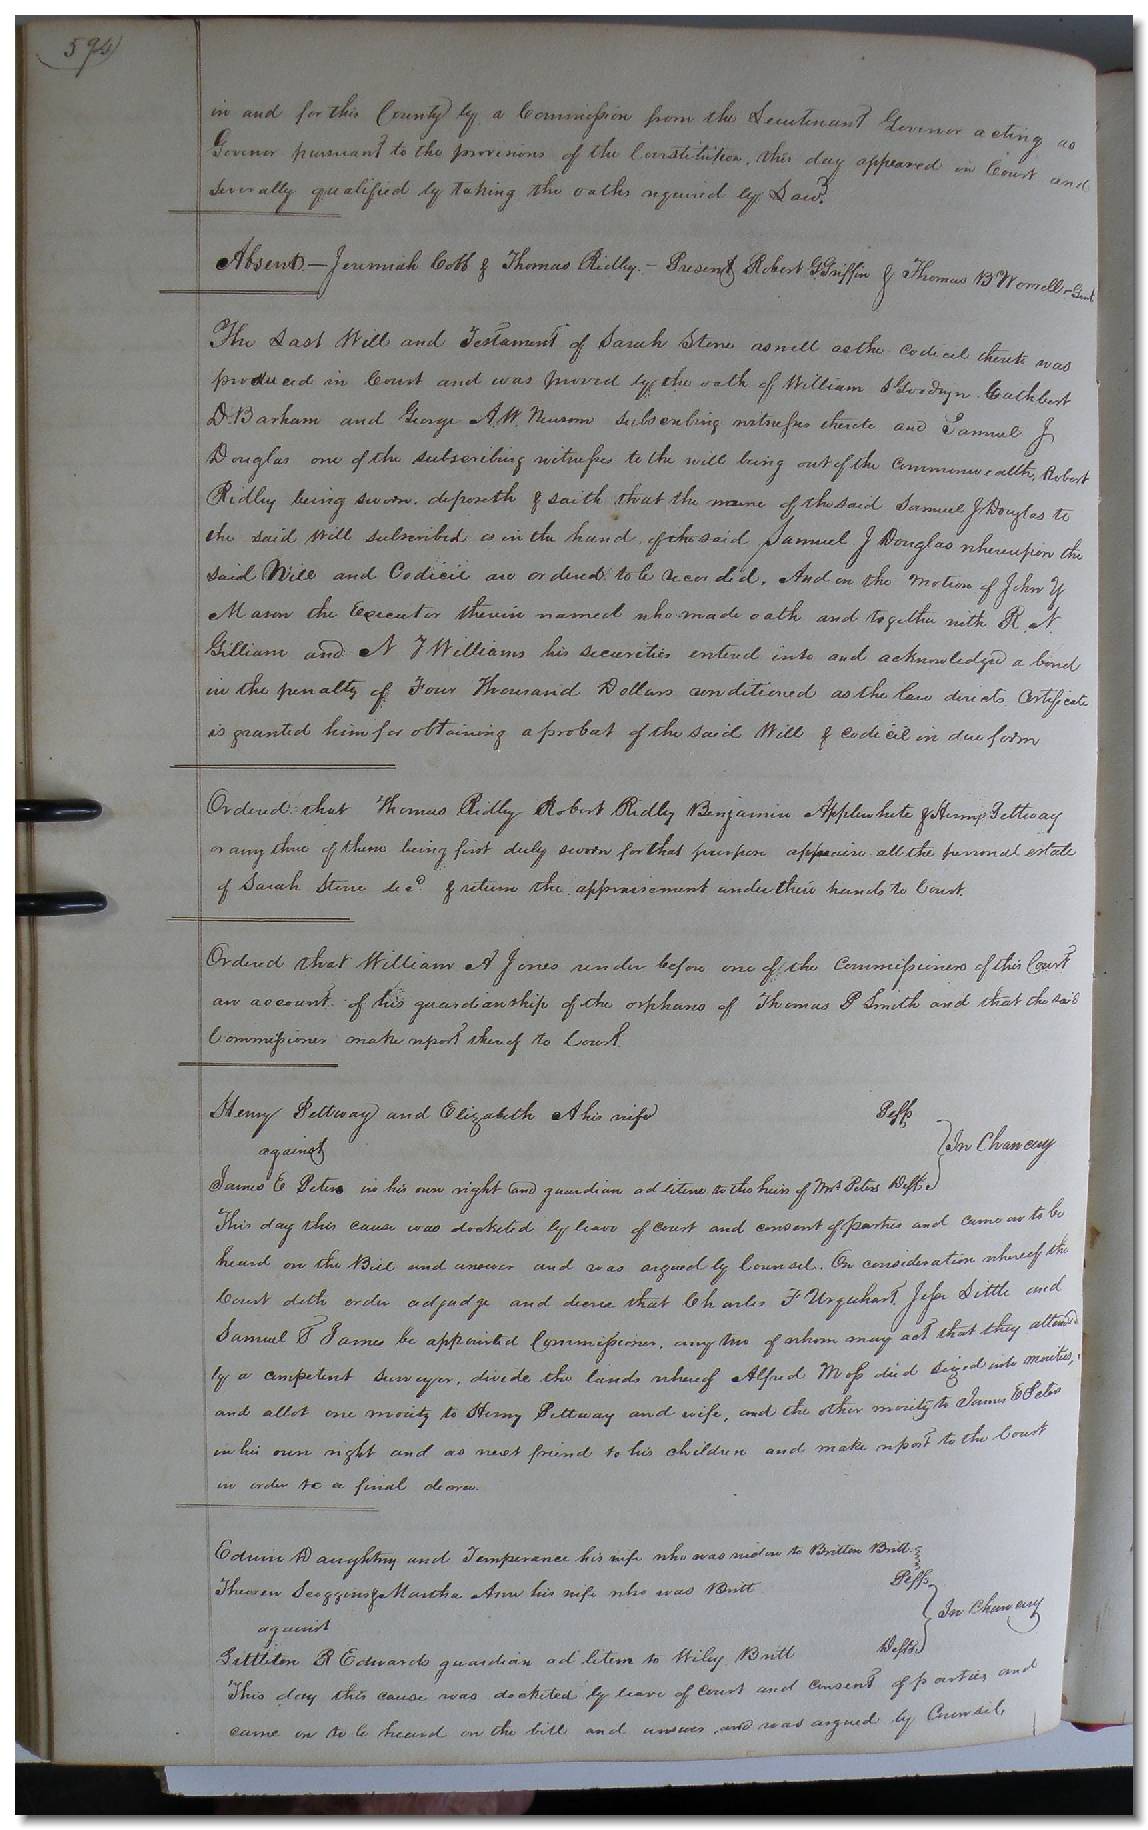 594
in and for this County by a Commission from the Lieutenant Govenor acting as
Govenor pursuant to the provisions of the Constitution, this day appeared in Court and
severally qualified by taking the oaths required by Law.
Absent — Jeremiah Cobb & Thomas Ridley. — Present Robert G. Griffin & Thomas B Worrell - Gent
The Last Will and Testament of Sarah Stone as well as the codicil thereto was
produced in Court and was proved by the oath of William S Goodwyn Cuthbert
D. Barham and George A. W. Newsom subscribing witnesses thereto and Samuel J
Douglas one of the subscribing witnesses to the will being out of the commonwealth, Robert
Ridley being sworn deposeth & saith that the name of the said Samuel J Douglas to
the said Will subscribed is in the hand of the said Samuel J Douglas whereupon the
said Will and Codicil are ordered to be recorded. And on the motion of John Y
Mason the Executor therein named who made oath and together with R. N.
Gilliam and N T Williams his securities entered into and acknowledged a bond
in the penalty of Four Thousand Dollars conditioned as the law directs Certificate
is granted him for obtaining a probat of the said Will & codicil in due form
Ordered that Thomas Ridley Robert Ridley Benjamin Applewhite & Henry Pettway
or any three of them being first duly sworn for that purpose appraise all the personal estate
of Sarah Stone decd & return the appraisement under their hands to Court.
Ordered that William A Jones render before one of the Commissioners of this Court
an account of his guardianship of the orphans of Thomas P Smith and that the said
Commissioner make report thereof to Court.
Henry Pettway and Elizabeth A his wife Plffs
against In Chancery
James E Peters in his own right and guardian ad litem to the heirs of Mrs Peters Defts
This day this cause was docketed by leave of court and consent of parties and came on to be
heard on the Bill and answer and was argued by Counsel. On consideration whereof the
Court doth order adjudge and decree that Charles F Urquhart, Jesse Little and
Samuel T James be appointed Commissioners, any two of whom may act that they attended
by a competent surveyor, divide the lands whereof Alfred Moss died seized into moieties,
and allot one moiety to Henry Pettway and wife, and the other moiety to James E Peters
in his own right and as next friend to his children and make report to the Court
in order to a final decree.
Edwin Daughtry and Temperance his wife who was widow to Britton Britt
Scoggins & Martha Ann his wife who was Britt Plffs
against In Chancery
Littleton R Edwards guardian ad litem to Wiley Britt Defts
This day this cause was docketed by leave of court and consent of parties and
came on to be heard on the bill and answer and was argued by Counsel,